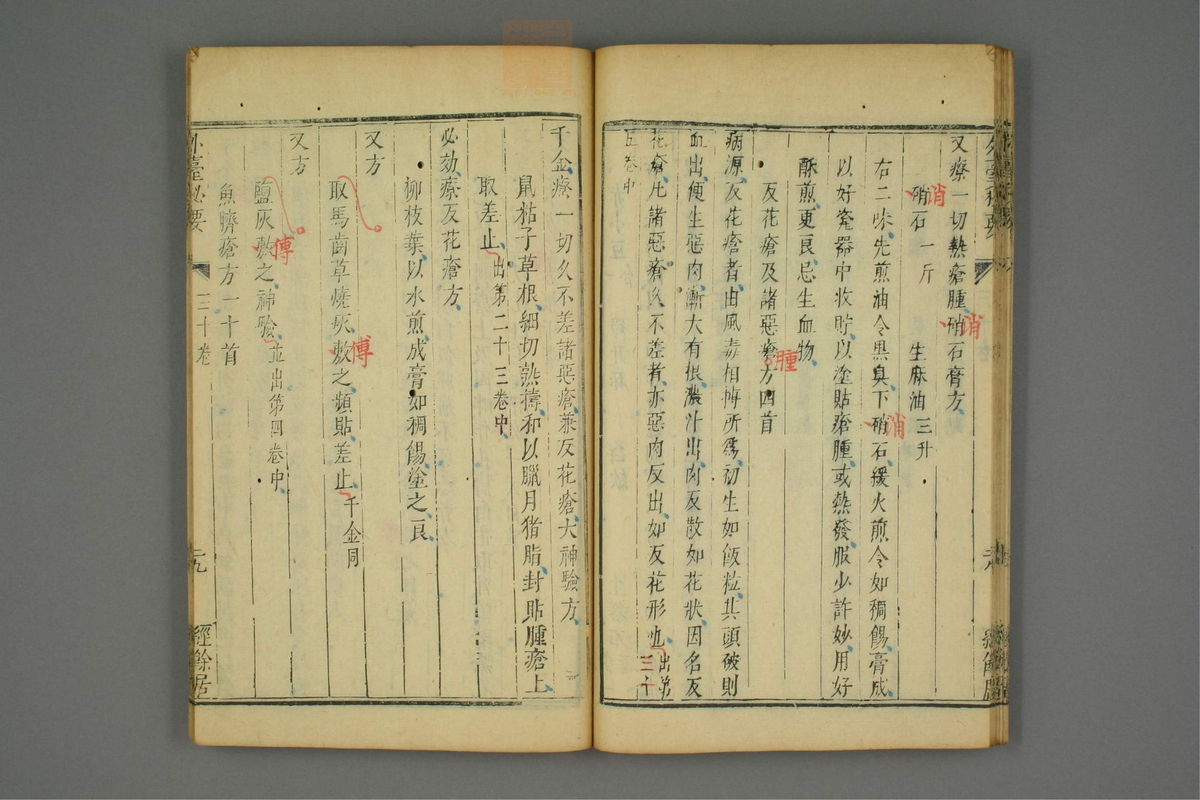 又療一切熱瘡腫硝石膏方
硝石一斤 生麻油三升
消
消
右二味先煎油令黑臭下硝石緩火煎令如稠餳膏成
消
以好瓷器中收貯以塗貼瘡腫或熱發服少許妙用好
酥煎更良忌生血物
反花瘡及諸惡瘡方四首
腫
病源反花瘡者由風毒相搏所為初生如飯粒其頭破則
血出便生惡肉漸大有根濃汁出肉反散如花狀因名反
花瘡凡諸惡瘡久不差者亦惡肉反出如反花形也出第三十
五卷中
千金療一切久不差諸惡瘡兼反花瘡大神驗方
鼠粘子草根細切熟擣和以臘月猪脂封貼腫瘡上
取差止出第二十三卷中
必効療反花瘡方
柳枝葉以水煎成膏如稠餳塗之良
又方
取馬齒草燒灰敷之頻貼差止千金同
傅
又方
鹽灰敷之神驗並出第四卷中
傅
魚臍瘡方一十首
外臺秘要 三十卷 二九 經餘居